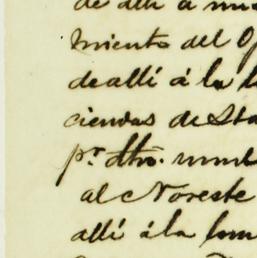 de allí á
miento del
de allí á la
ciendas de Sta
pr. dho.
al Noreste
allí á la